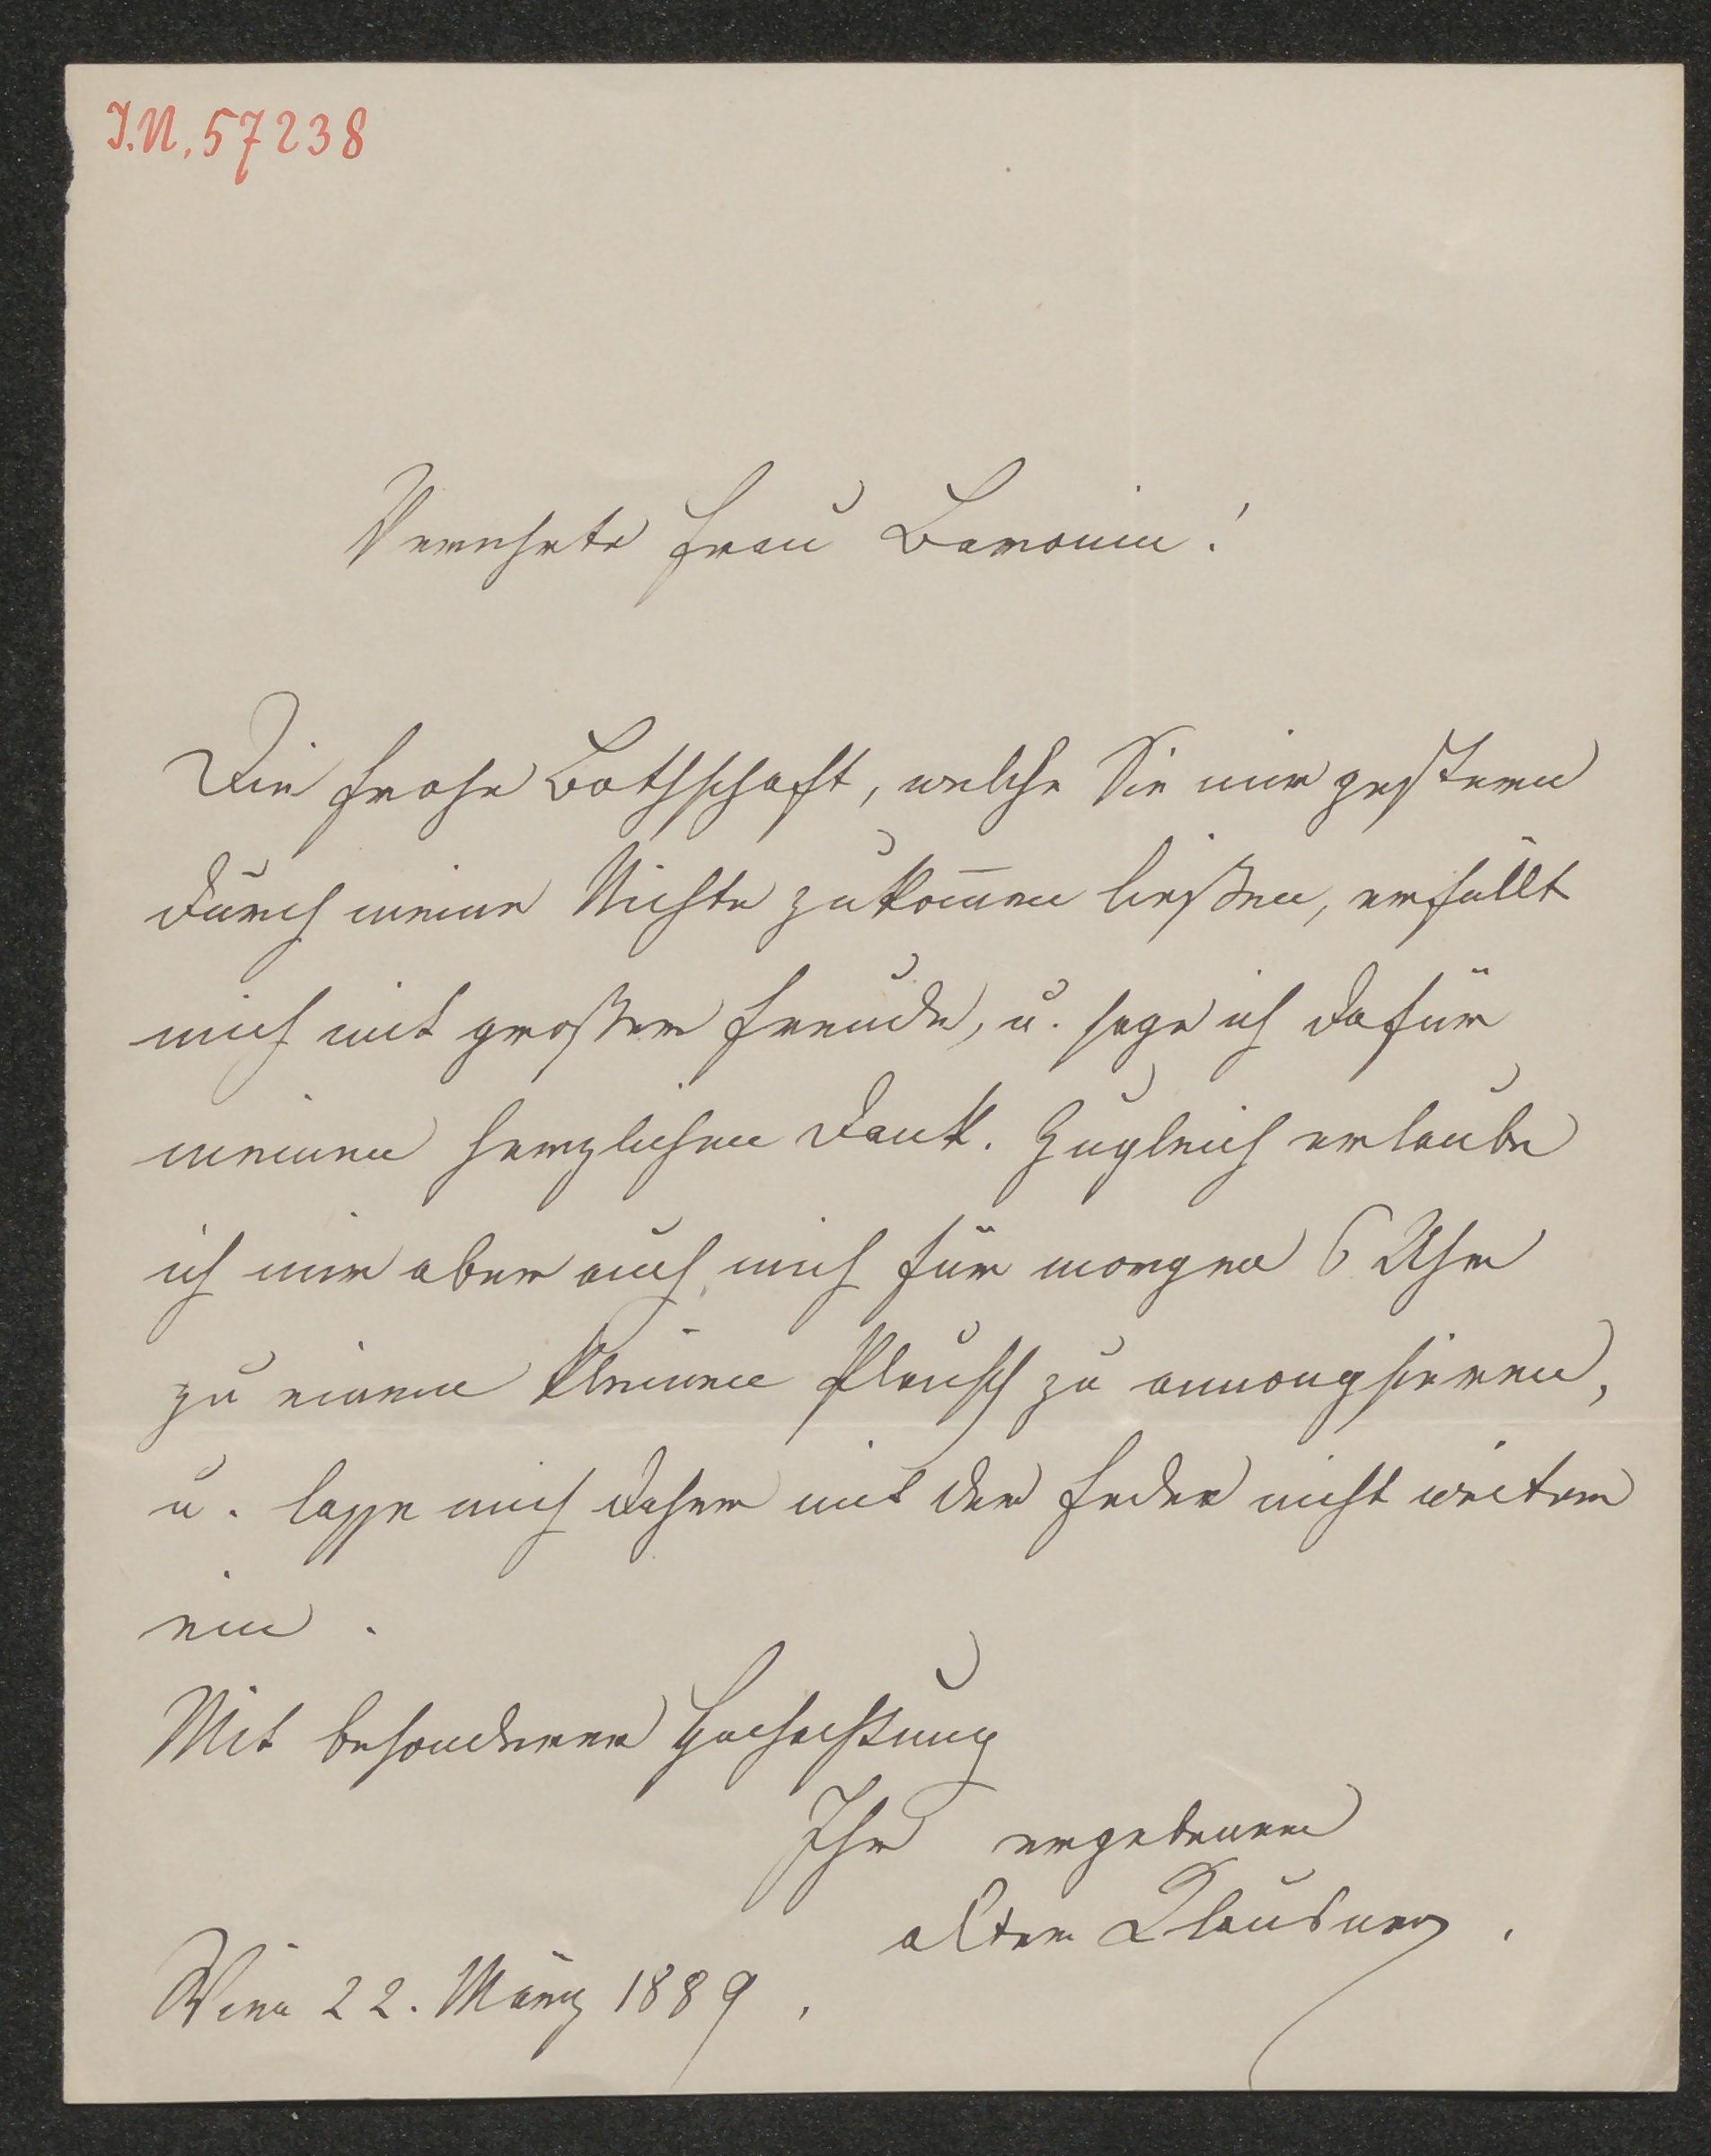 I.N. 57238
Verehrte Frau Baronin!
Die frohe Bothschaft, welche Sie mir gestern
durch meine Nichte zukom̅en ließen, erfüllt
mich mit großer Freude, u. sage ich dafür
meinen herzlichen Dank. Zugleich erlaube
ich mir aber auch mich für morgen 6 Uhr
zu einem kleinen Plausch zu annongsieren,
u. lasse mich daher mit der Feder nicht weiter
ein.
Mit besonderer Hochachtung
Ihr ergebener
alter Klausner.
Wien 22. März 1889.